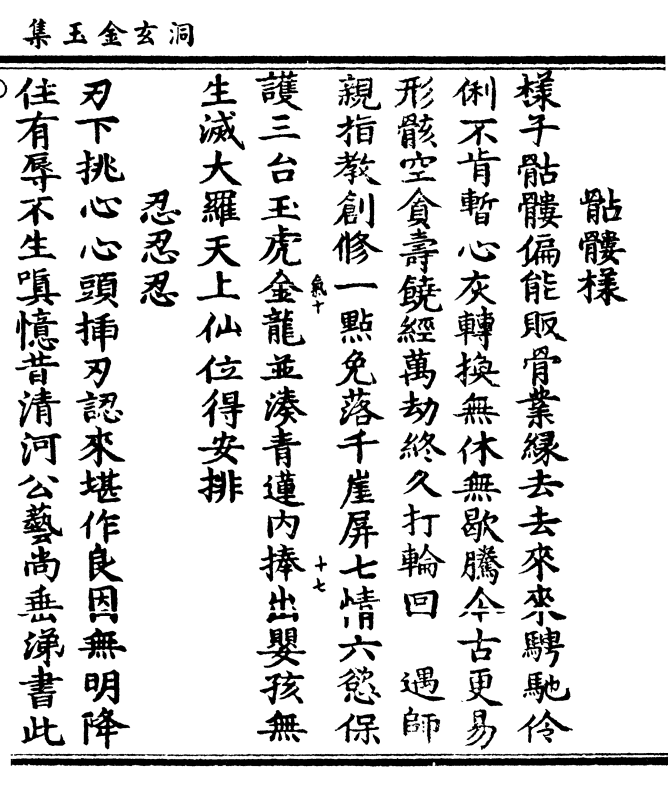 洞玄金玉集
骷髏樣
樣子骷髏偏能販骨業緣去去來來騁馳伶
俐不肯暫心灰轉換無休無歇騰今古更易
形骸空貪壽饒經萬劫終久打輪回　遇師
親指教創修一點免落千崖屏七情六慾保
氣十
十七
護三台玉虎金龍並湊青蓮內捧出嬰孩無
生滅大羅天上仙位得安排
忍忍忍
刃下挑心心頭插刃認來堪作良因無明降
住有辱不生嗔憶昔清河公藝尚垂涕書此